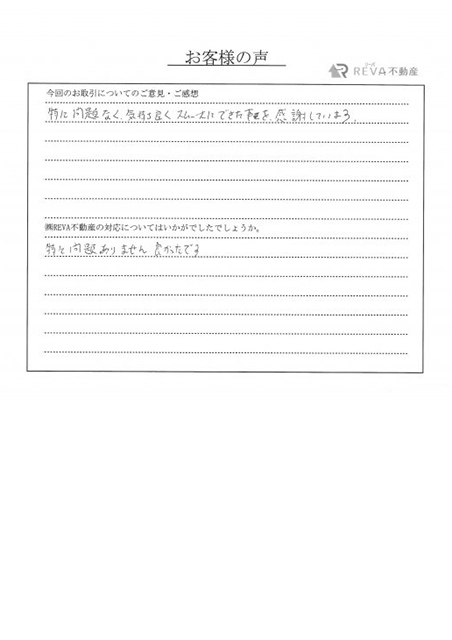 お客様の声
REVA不動産
今回のお取引についてのご意見・ご感想
特に問題なく、気持ち良くスムーズにできた事を、感謝しています。
㈱REVA不動産の対応についてはいかがでしたでしょうか。
特に問題ありません 良かったです